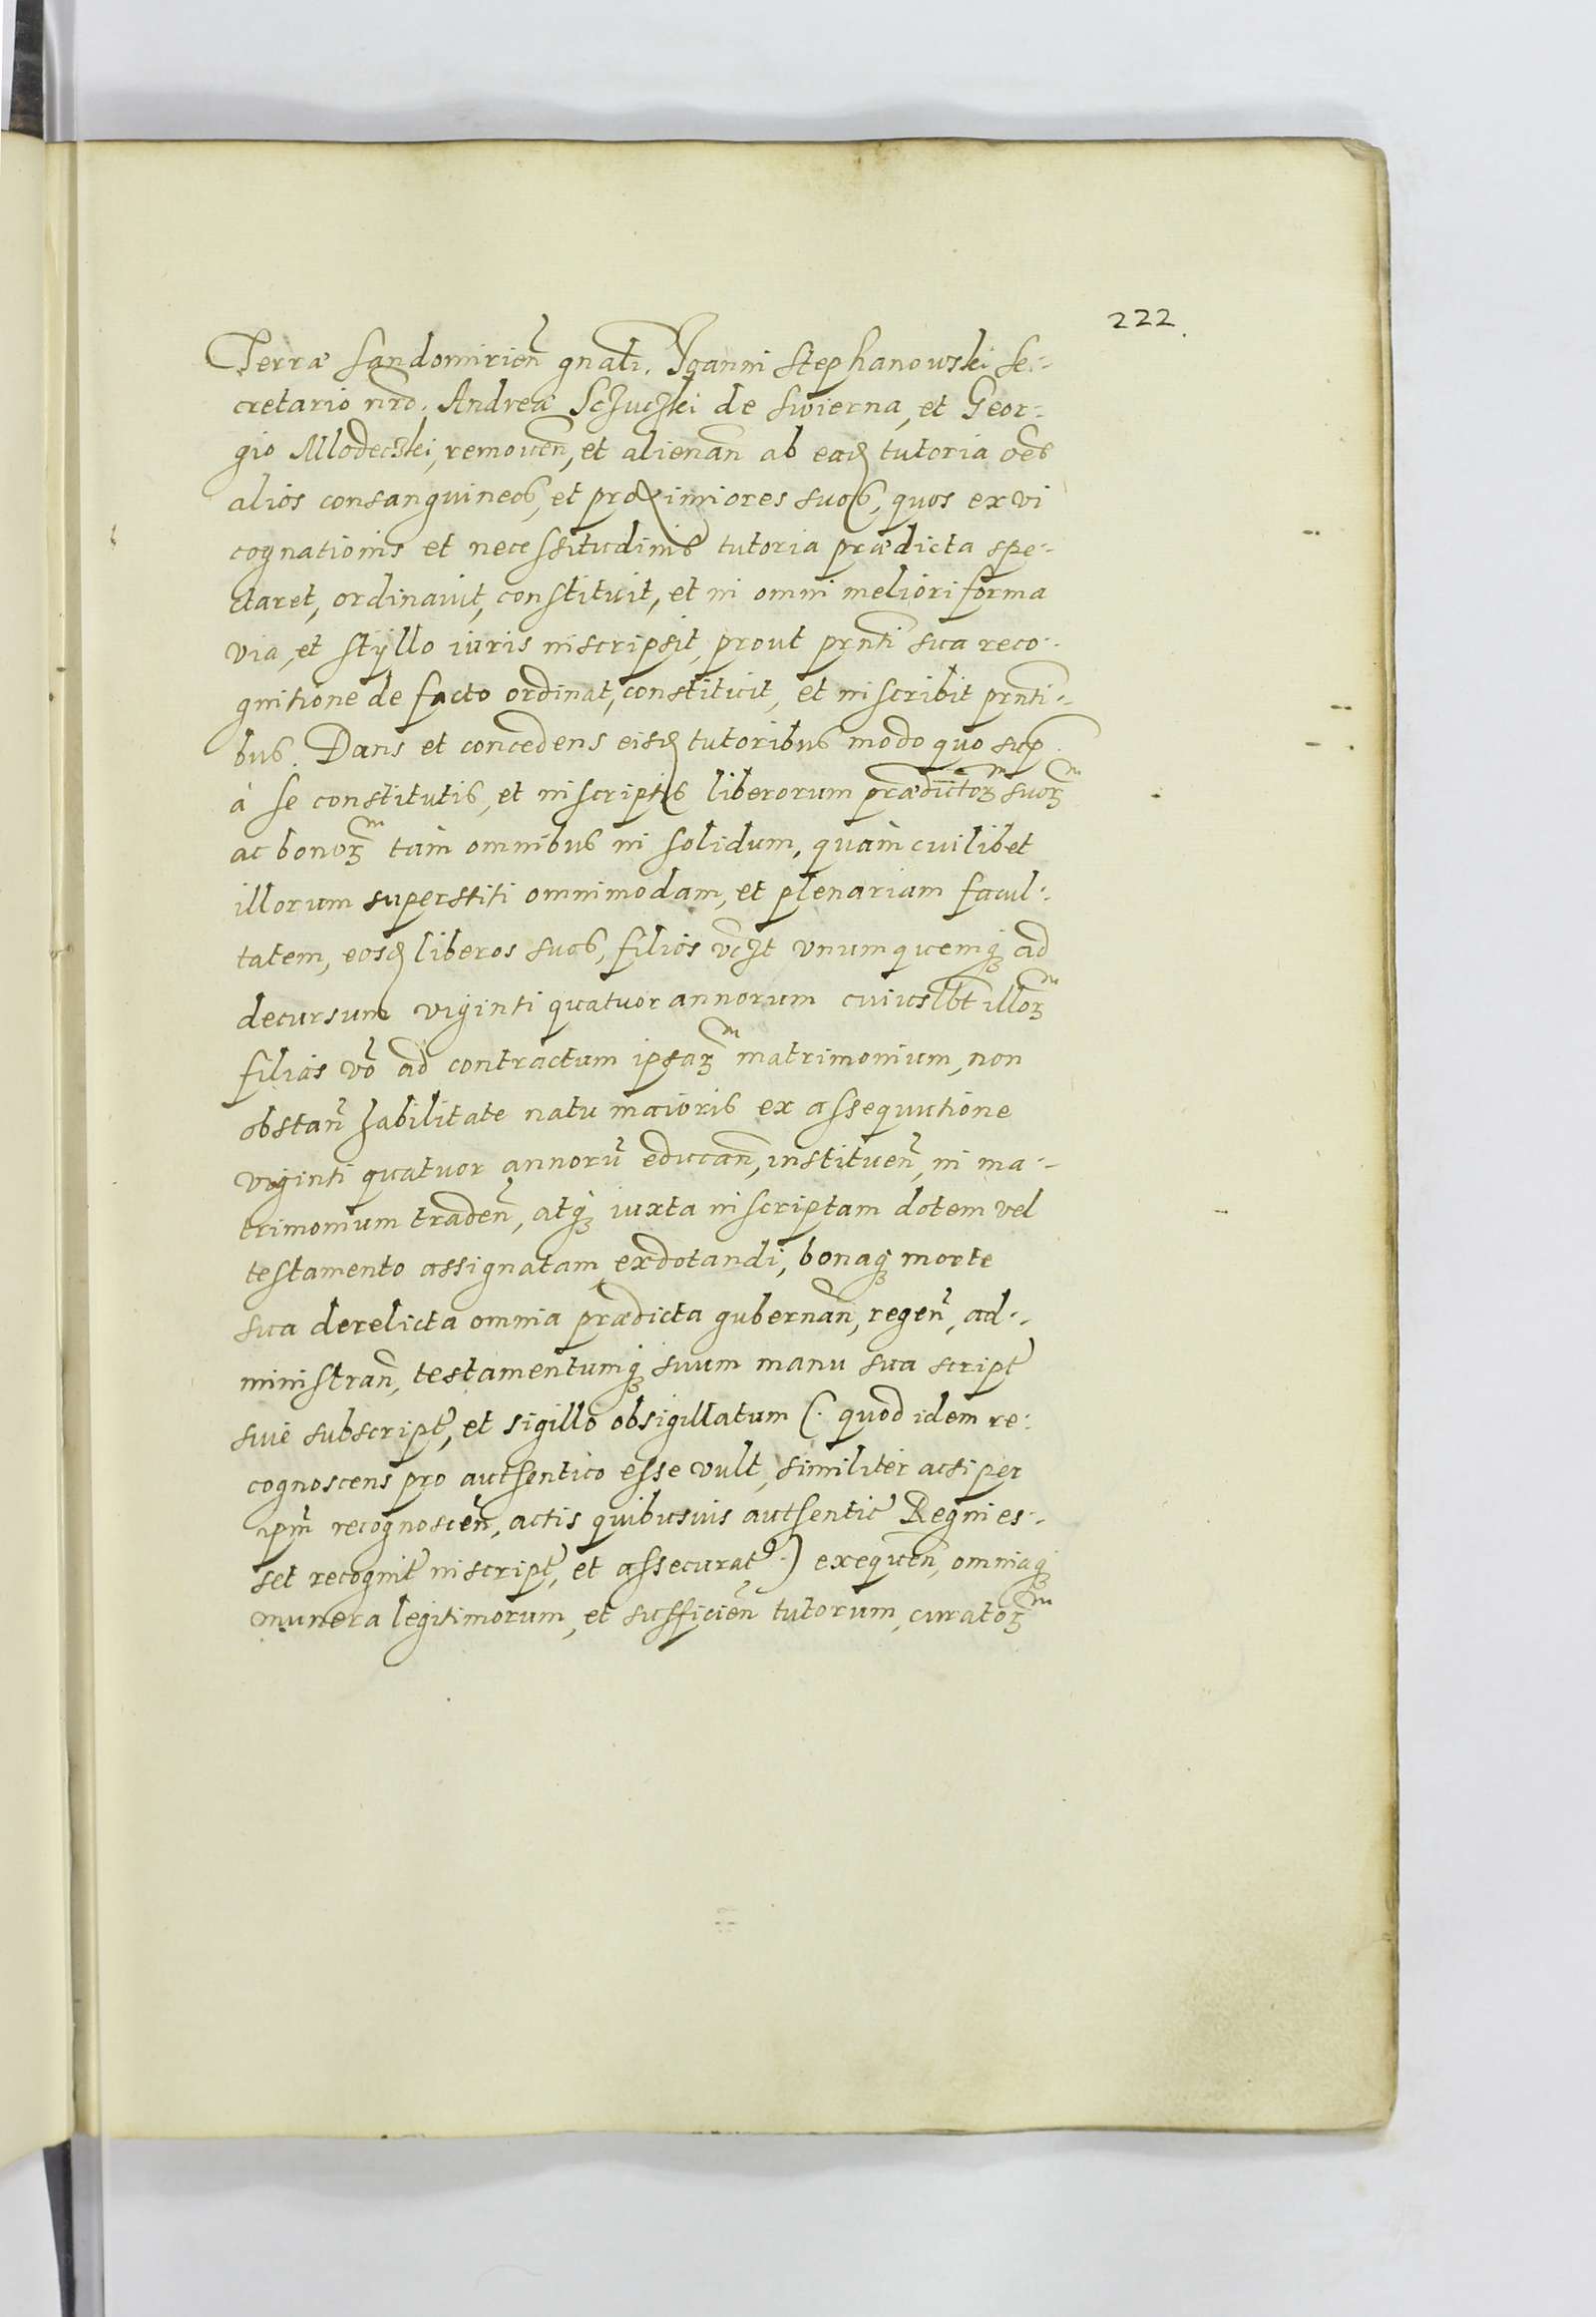 222.
Terræ Sandomirien̄ gnali. Joanni Stephanowski Se-
cretario nr̄o. Andreæ Sczuczki de Swierna, et Geor-
gio Mlodeczki, removen̄, et alienan̄ ab eadȝ tutoria oēs
alios consanguineos, et proximiores suos, quos ex vi
cognationis et necessitudinis tutoria prædicta spe-
ctaret, ordinavit, constituit, et in omni meliori forma
via, et styllo iuris inscripsit, prout prn̄ti sua reco-
gnitione de facto ordinat, constituit, et inscribit prn̄ti-
bus. Dans et concedens eisdȝ tutoribus modo quo sup.
à se constitutis, et inscriptis liberorum prædictorȝ suorȝ
ac bonorȝ tàm omnibus in solidum, quàm cuilibet
illorum superstiti omnimodam, et plenariam facul-
tatem, eosdȝ liberos suos, filios vczt unumquemqȝ ad
decursum viginti quatuor annorum cuiuslbt illorȝ
filias vō ad contractum ipsarȝ matrimonium, non
obstan̄ habilitate natu maioris ex assequutione
viginti quatuor annorū educan̄, instituen̄, in ma-
trimonium traden̄, atqȝ iuxta inscriptam dotem vel
testamento assignatam exdotandi, bonaqȝ morte
sua derelicta omnia prædicta gubernan̄, regen̄, ad-
ministran̄, testamentumqȝ suum manu sua script̄
sive subscript̄, et sigillo obsigillatum (. quod idem re-
cognoscens pro authentico esse vult, similiter acsi per
ipm̄ recognoscen̄, actis quibusvis authentic̄ Regni es-
set recognit̄ inscript̄, et assecurat̄ .) exequen̄, omniaqȝ
munera legitimorum, et sufficien̄ tutorum, curatorȝ